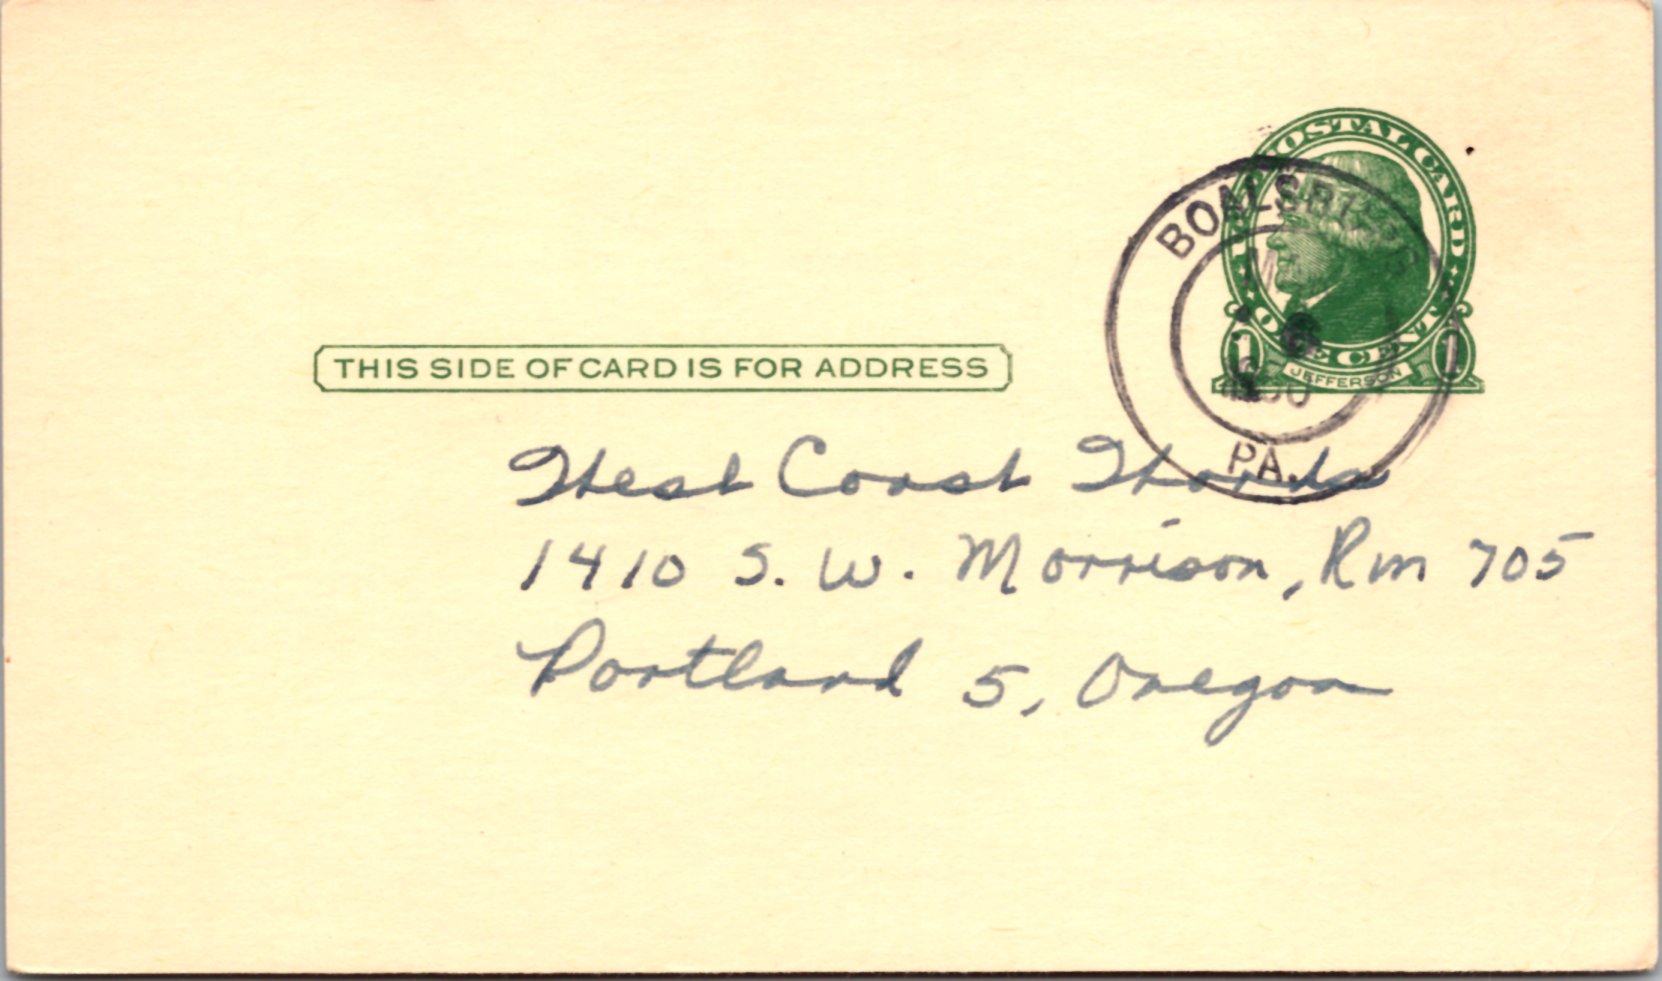 U.S. POSTAL CARD
ONE CENT
1 JEFFERSON 1
BOALSBURG
PA.
THIS SIDE OF CARD IS FOR ADDRESS
West Coast
1410 S. W. Morrison, Rm 705
Portland 5, Oregon